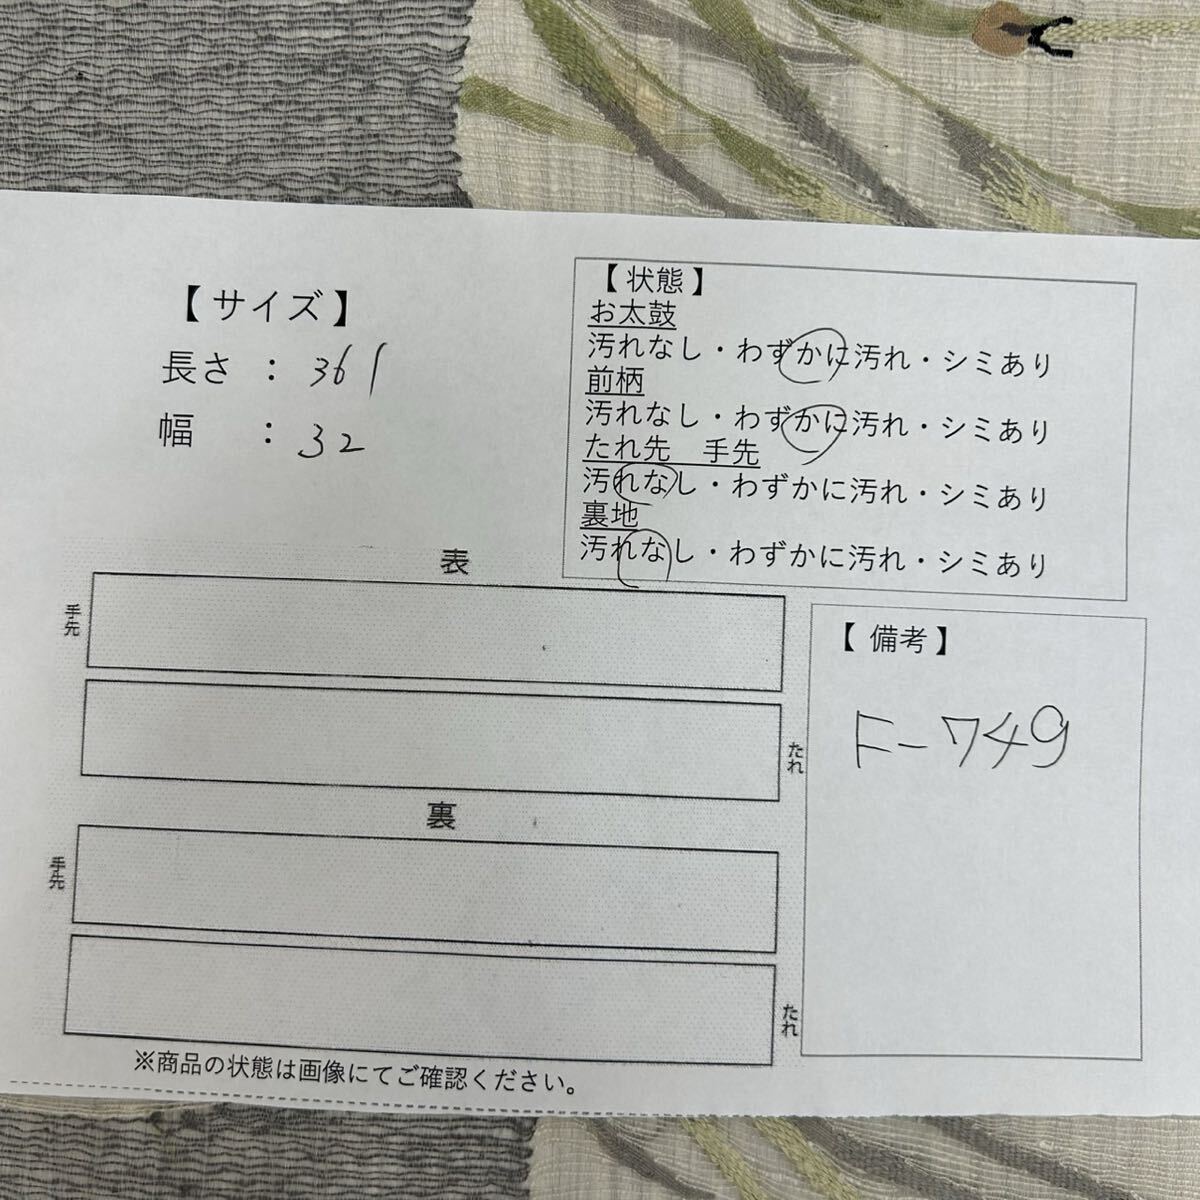 【サイズ】
長さ : 361
幅 : 32
【状態】
お太鼓
汚れなし・わずかに汚れ・シミあり
前柄
汚れなし・わずかに汚れ・シミあり
たれ先 手先
汚れなし・わずかに汚れ・シミあり
裏地
汚れなし・わずかに汚れ・シミあり
表
手先
たれ
裏
手先
たれ
【備考】
F-749
※商品の状態は画像にてご確認ください。